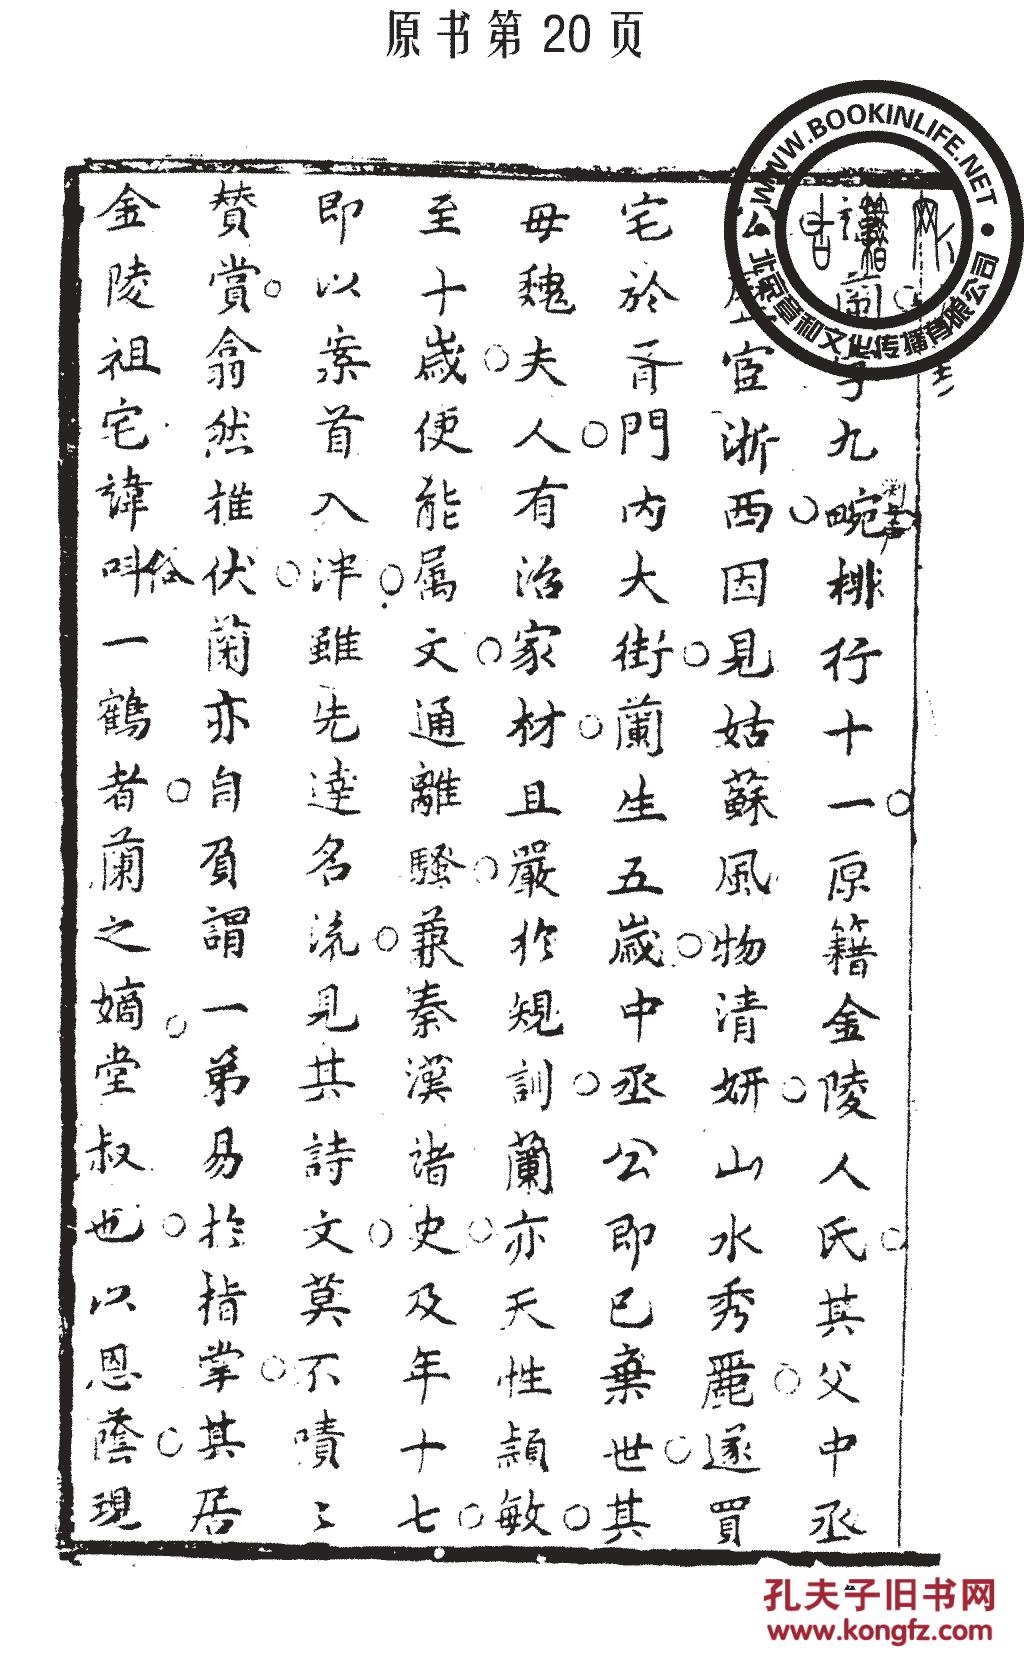 原书第 20 页
WWW.BOOKINLIFE.NET
蘭字九畹排行十一原籍金陵人氏其父中丞
公歷宦浙西因見姑蘇風物清妍山水秀麗遂買
宅於胥門内大街蘭生五歲中丞公即已棄世其
母魏夫人有治家材且嚴於規訓蘭亦天性頴敏
至十歲便能属文通離騷兼秦漢諸史及年十七
即以案首入泮雖先達名流見其詩文莫不嘖々
賛賞翕然推伏蘭亦自負謂一第易於指掌其居
金陵祖宅諱呌一鶴者蘭之嫡堂叔也以恩蔭現
俗
孔夫子旧书网
www.kongfz.com